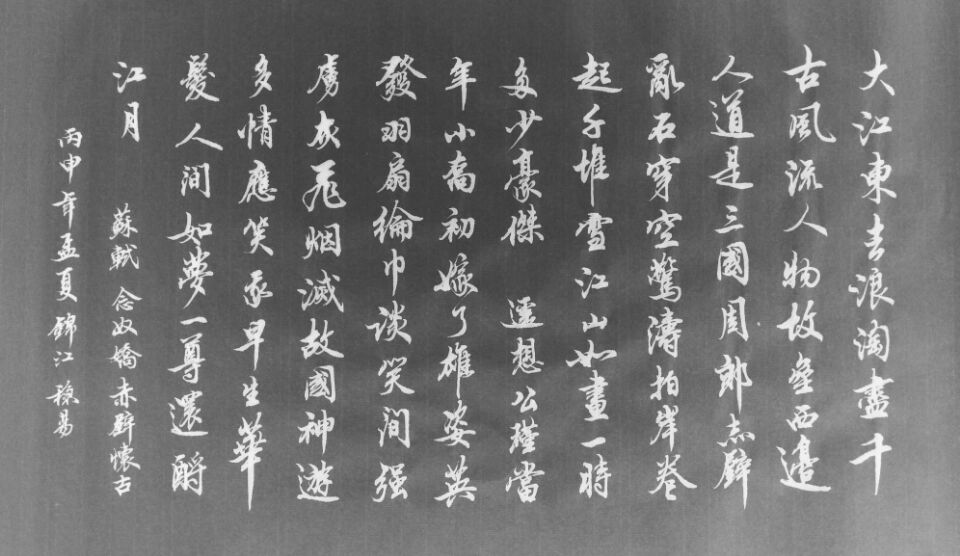 大江東去浪淘盡千
古風流人物故壘西邊
人道是三國周郎赤壁
亂石穿空驚濤拍岸卷
起千堆雪江山如畫一時
多少豪傑 遥想公瑾當
年小喬初嫁了雄姿英
發羽扇綸巾談笑間强
虜灰飛烟滅故國神遊
多情應笑我早生華
髮人間如夢一尊還酹
江月 蘇軾念奴嬌赤壁懷古
丙申年孟夏錦江穩易